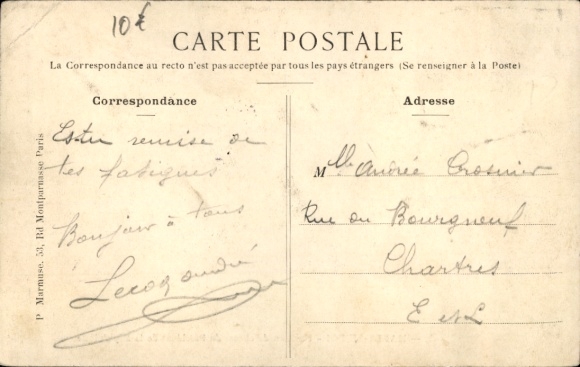 10€
CARTE POSTALE
La Correspondance au recto n'est pas acceptée par tous les pays étrangers (Se renseigner à la Poste)
Correspondance
Es-tu remise de
tes fatigues
Bonjour à tous
Lecoq André
P. Marmuse, 53, Bd Montparnasse Paris
Adresse
Mlle Andrée Crosnier
Rue du Bourgneuf
Chartres
E et L